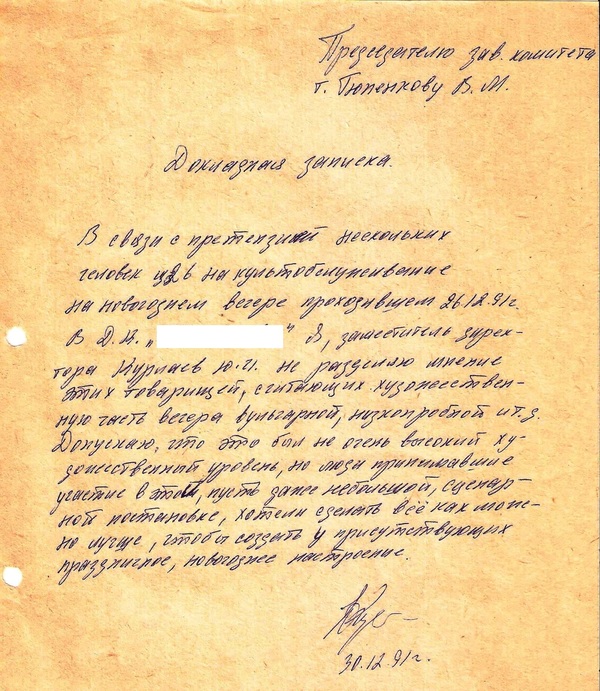 Председателю зав. комитета
т. Тюпенкову В. М.
Докладная записка.
В связи с претензией нескольких
человек на культобслуживание
на новогоднем вечере проходившем 26.12.91г.
В Д.К. „ " Я, заместитель дирек-
тора Курлаев Ю.И. не разделяю мнение
этих товарищей, считающих художествен-
ную часть вечера вульгарной, низкопробной и т.д.
Допускаю, что это был не очень высокий ху-
дожественный уровень, но люди принимавшие
участие в этой, пусть даже небольшой, сценар-
ной постановке, хотели сделать всё как мож-
но лучше, чтобы создать у присутствующих
праздничное, новогоднее настроение.
30.12.91г.